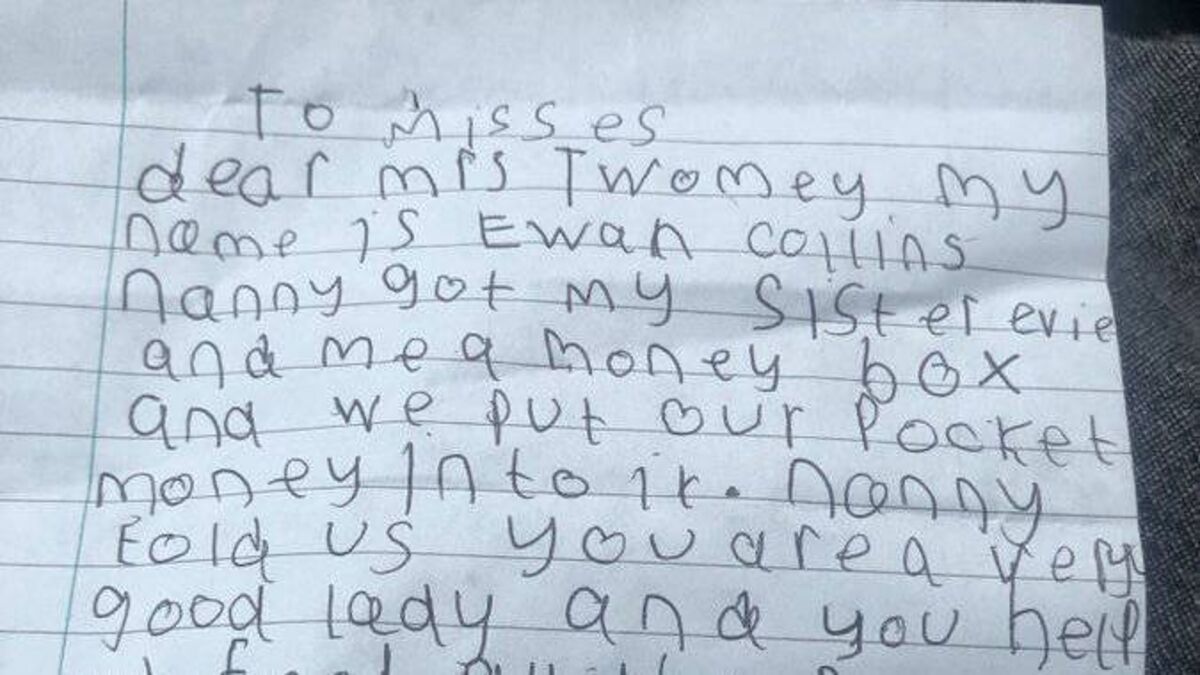 To Misses
dear mrs Twomey my
name is Ewan collins
nanny got my Sister evie
and me a money box
and we put our Pocket
money into it. nanny
told us you are a very
good lady and you help